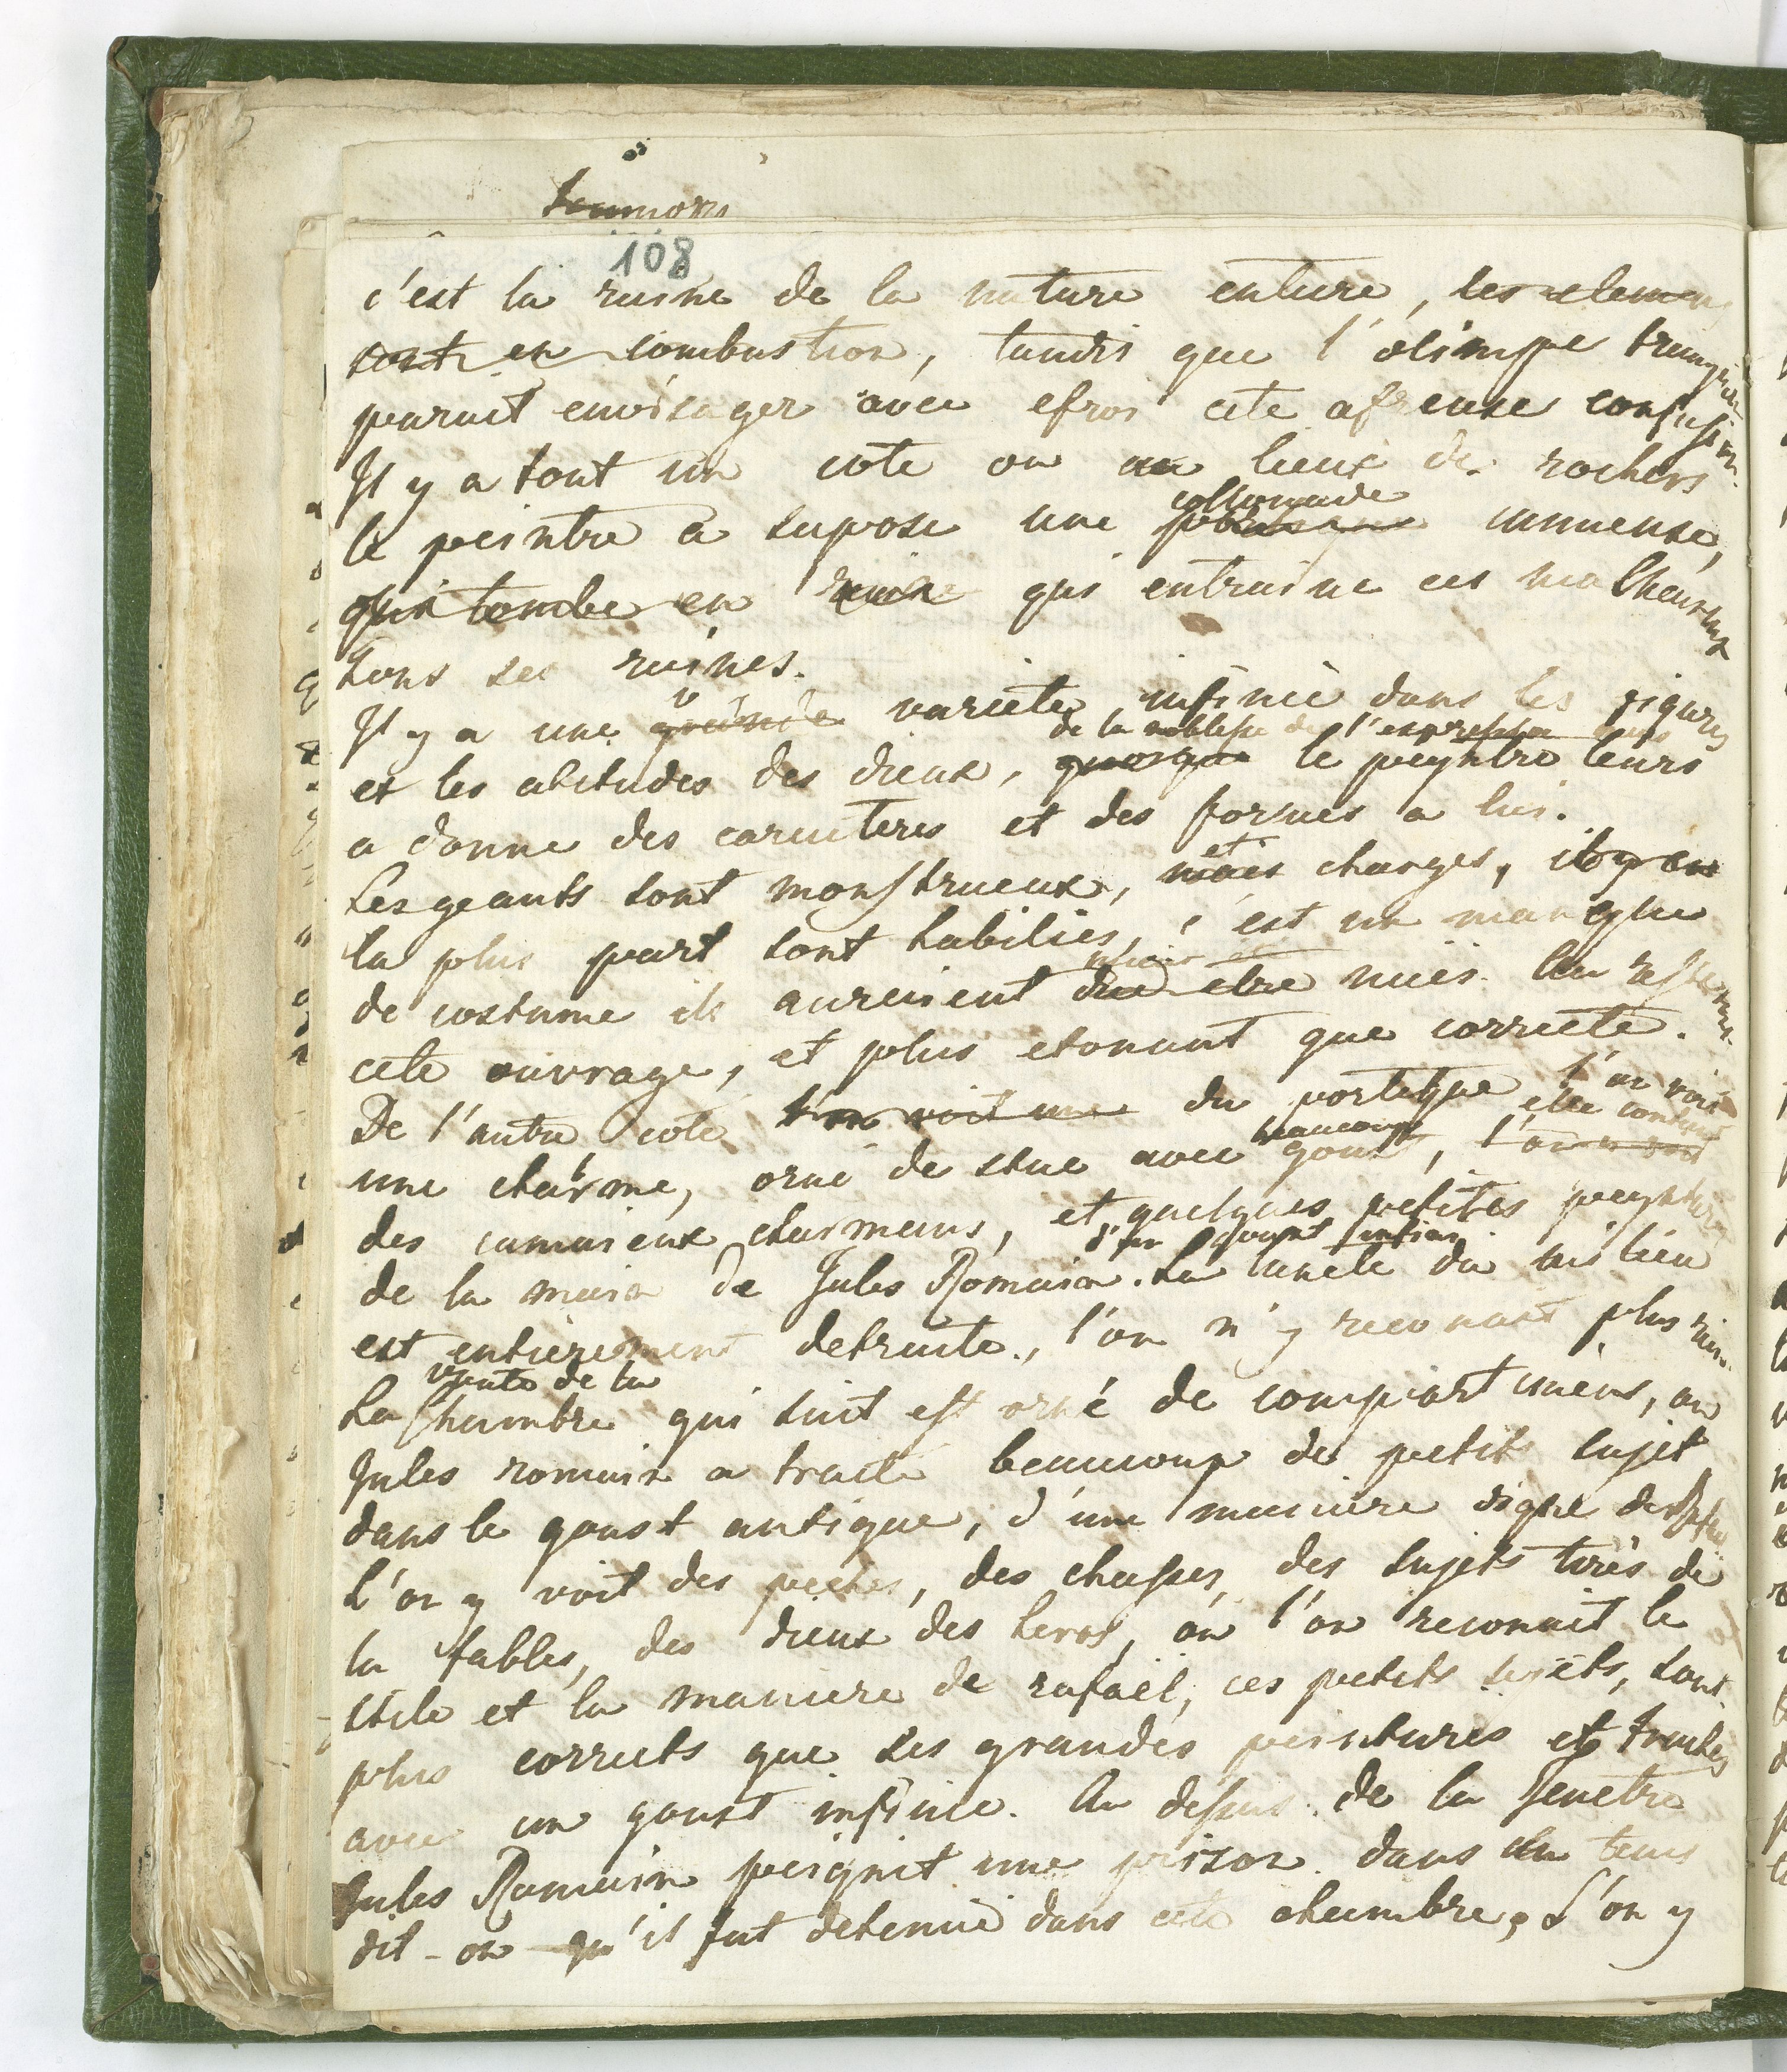 108
c'est la ruine de la nature entiere, les elemen
sont en combustion, tandis que l'olimpe
parait envisager avec efroi cete afreuse confusion.
Il y a tout un coté ou au lieux de rochers
collonade
le peintre a suposé une immense,
qui tombe en ruine qui entraine ces malheureux
sons ses ruines.
Il y a une grande varieté infinie dans les figures
de la noblesse de l'expression dans
et les atitudes des dieux, quoique le peyntre leurs
a donne des caracteres et des formes a lui.
et
Les geants sont monstrueux, mais charges, il y en
la plus part sont habiliés, c'est un manque
de costume ils auroient due etre nuës.
cete ouvrage, et plus etonant que correcte.
De l'autre coté l'on voit une du portique l'on voit
beaucoup elle contient
une chabrme, orné de stuc avec goust, l'on y voit
des camaieux charmans, et quelques petites peyntures
d'un goust
de la main de Jules Romain. La lunete du milieu
est entierement detruite, l'on n'y reconait plus rien.
voute de la
La Chambre qui suit est orné de compartimens, ou
Jules romain a traité beaucoup de petits sujet
dans le goust antique, d'une maniere digne de
L'on y voit des peches, des chasses, des sujets tirés de
la fables, des dieux des heros, ou l'on reconait le
stile et la maniere de rafaël, ces petits sujets, sont
plus corrects que ses grandes peintures et traités
avec un goust infinie. Au dessus de la fenetre
Jules Romain peignit une prison. dans un tems
dit-on qu'il fut detenuë dans cete chambre, L'on y